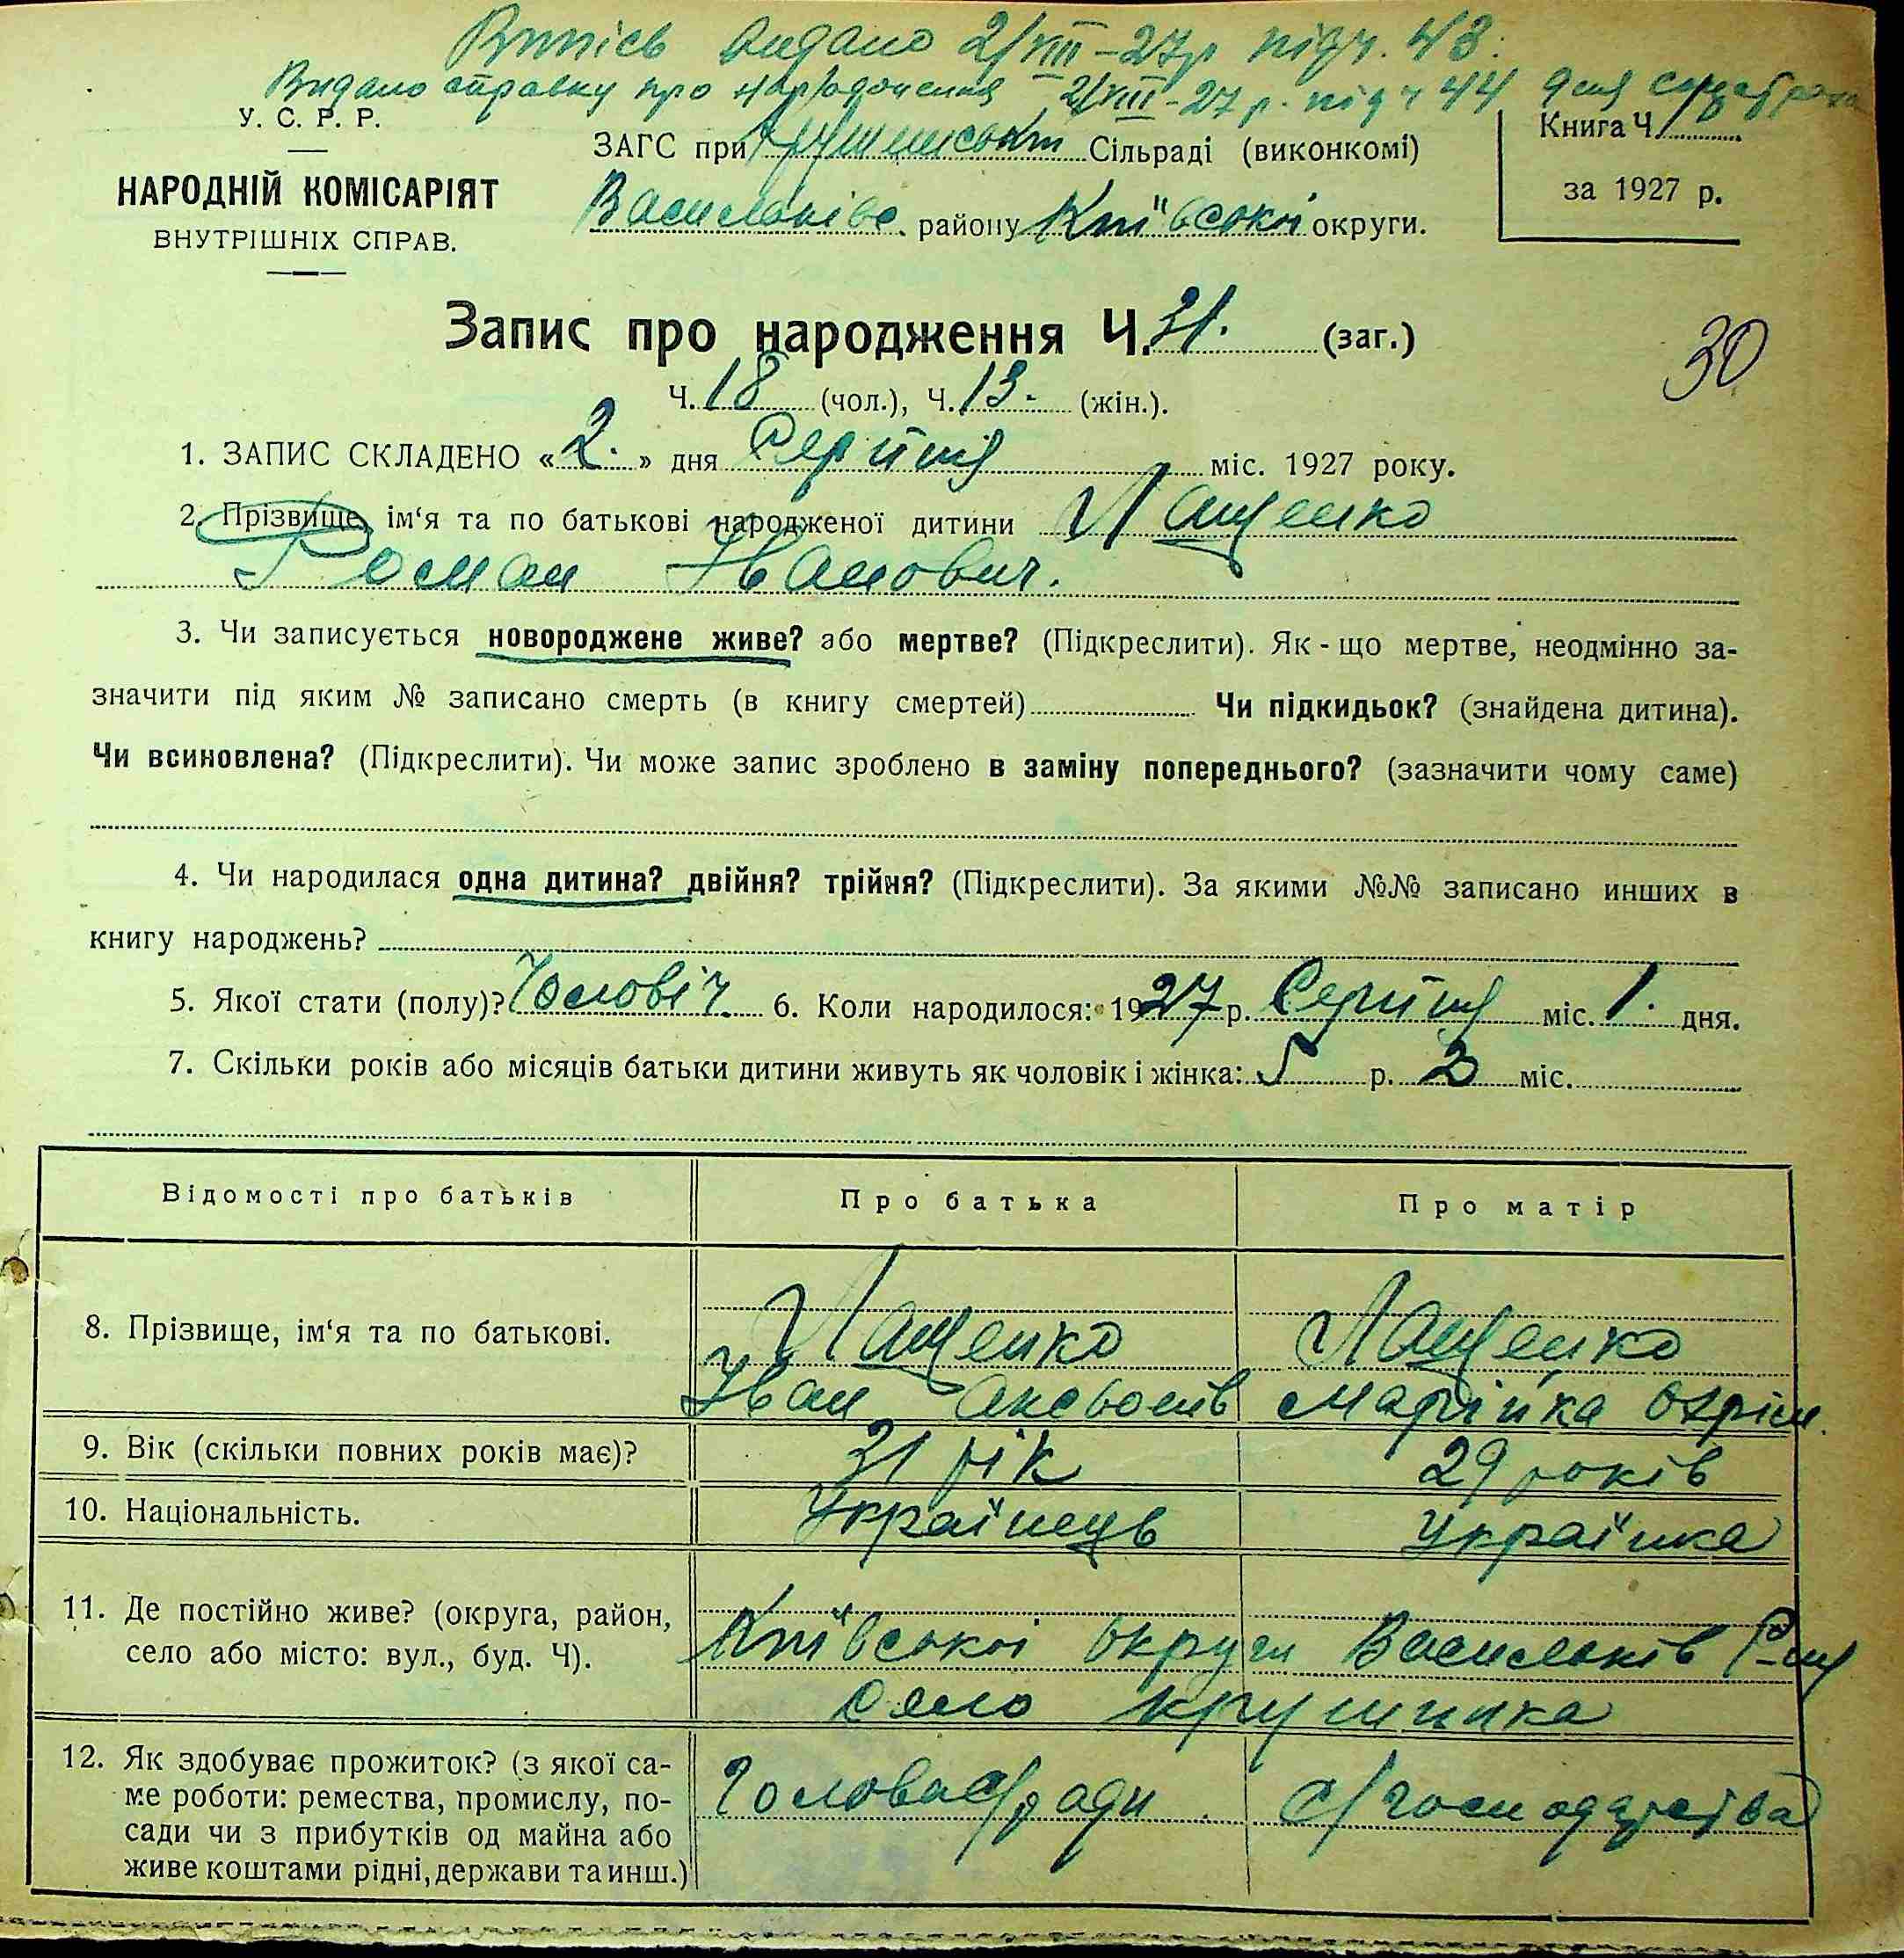 Випись видано 2/VIII-27р під ч. 43.
Видано справку про народження 2/VIII-27 р. під ч 44 для
У. С. Р. Р.
НАРОДНІЙ КОМІСАРІЯТ
ВНУТРІШНІХ СПРАВ.
ЗАГС при Крушинськім Сільраді (виконкомі)
Васильків. району Київської округи.
Книга Ч. 1
за 1927 р.
Запис про народження Ч. 31. (заг.)
30
Ч. 18 (чол.), Ч. 13. (жін.).
1. ЗАПИС СКЛАДЕНО «2.» дня Серпня міс. 1927 року.
2. Прізвище, ім‘я та по батькові народженої дитини Лащенко
Роман Іванович.
3. Чи записується новороджене живе? або мертве? (Підкреслити). Як-що мертве, неодмінно за-
значити під яким № записано смерть (в книгу смертей) Чи підкидьок? (знайдена дитина).
Чи всиновлена? (Підкреслити). Чи може запис зроблено в заміну попереднього? (зазначити чому саме)
4. Чи народилася одна дитина? двійня? трійня? (Підкреслити). За якими №№ записано инших в
книгу народжень?
5. Якої стати (полу)? Чоловіч. 6. Коли народилося: 1927 р. Серпня міс. 1. дня.
7. Скільки років або місяців батьки дитини живуть як чоловік і жінка: 5 р. 2 міс.
Відомості про батьків Про батька Про матір
8. Прізвище, ім‘я та по батькові. Лащенко Лащенко
Іван Марійка Охрім.
9. Вік (скільки повних років має)? 31 рік 29 років
10. Національність. Українець Українка
11. Де постійно живе? (округа, район,
село або місто: вул., буд. Ч).
Київської округи Васильків Р-ну
село Крушинка
12. Як здобуває прожиток? (з якої са-
ме роботи: ремества, промислу, по-
сади чи з прибутків од майна або
живе коштами рідні, держави та инш.)
Голова с/ради. с/господарства